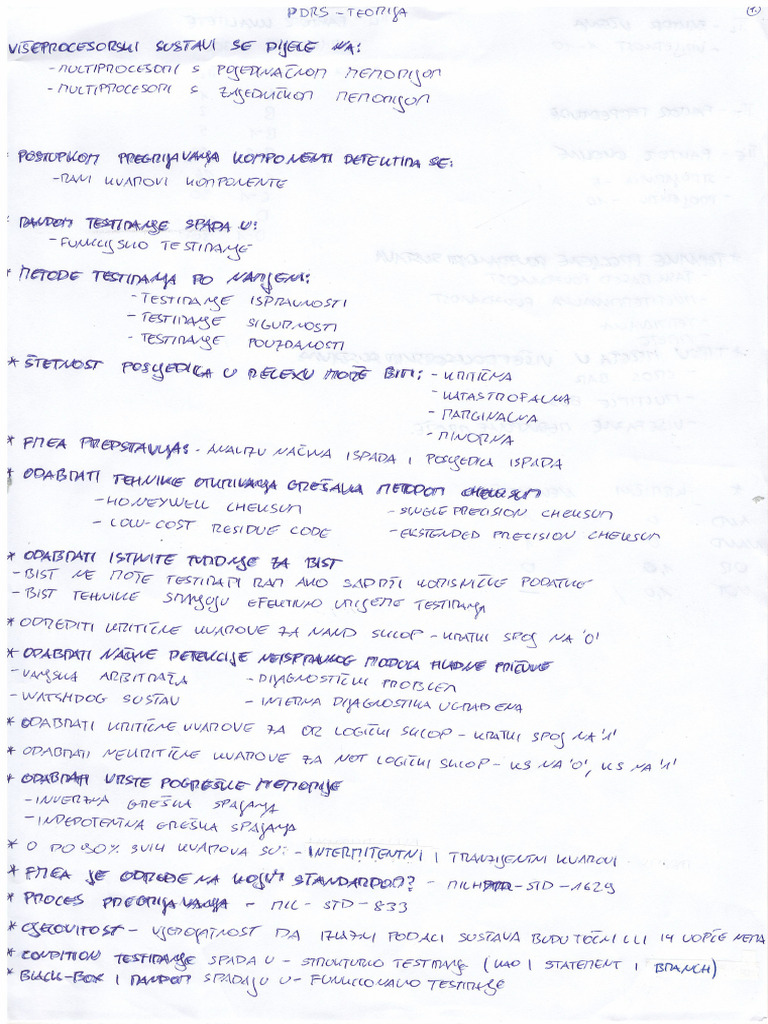 PDRS - TEORIJA
1.
VIŠEPROCESORSKI SUSTAVI SE DIJELE NA:
- MULTIPROCESORI S POJEDINAČNOM MEMORIJOM
- MULTIPROCESORI S ZAJEDNIČKOM MEMORIJOM
POSTUPKOM PREGRIJAVANJA KOMPONENTI DETEKTIRA SE:
- RANI KVAROVI KOMPONENTE
* RANDOM TESTIRANJE SPADA U:
- FUNKCIJSKO TESTIRANJE
* METODE TESTIRANJA PO NAMJENI:
- TESTIRANJE ISPRAVNOSTI
- TESTIRANJE SIGURNOSTI
- TESTIRANJE POUZDANOSTI
* ŠTETNOST POSLJEDICA U RELEXU MOŽE BITI: - KRITIČNA
- KATASTROFALNA
- MARGINALNA
- MINORNA
* FMEA PREDSTAVLJA - ANALIZU NAČINA ISPADA I POSLJEDICA ISPADA
* ODABRATI TEHNIKE OTKRIVANJA GREŠAKA METODOM CHEKSUM
- HONEYWELL CHEKSUM - SINGLE PRECISION CHEKSUM
- LOW-COST RESIDUE CODE - EKSTENDED PRECISION CHEKSUM
* ODABRATI ISTINITE TVRDNJE ZA BIST
- BIST NE MOŽE TESTIRATI RAM AKO SADRŽI KORISNIČKE PODATKE
- BIST TEHNIKE SMANJUJU EFEKTIVNO VRIJEME TESTIRANJA
* ODREDITI KRITIČNE KVAROVE ZA NAND SKLOP - KRATKI SPOJ NA '0'
* ODABRATI NAČINE DETEKCIJE NEISPRAVNOG MODULA HLADNE PRIČUVE
- VANJSKA ARBITRAŽA - DIJAGNOSTIČKI PROBLEM
- WATSHDOG SUSTAV - INTERNA DIJAGNOSTIKA UGRAĐENA
* ODABRATI KRITIČNE KVAROVE ZA OR LOGIČKI SKLOP - KRATKI SPOJ NA '1'
* ODABRATI NEKRITIČNE KVAROVE ZA NOT LOGIČKI SKLOP - KS NA '0', KS NA '1'
* ODABRATI VRSTE POGREŠKE MEMORIJE
- INVERZNA GREŠKA SPAJANJA
- INDEPOTENTNA GREŠKA SPAJANJA
* O DO 90% SVIH KVAROVA SU: - INTERMITENTNI I TRANZIJENTNI KVAROVI
* FMEA JE ODREĐENA KOJIM STANDARDOM? - MIL-STD-1629
* PROCES PREGRIJAVANJA - MIL - STD - 833
* CJELOVITOST - VJEROJATNOST DA IZLAZNI PODACI SUSTAVA BUDU TOČNI ILI IH UOPĆE NEMA
* CONDITION TESTIRANJE SPADA U - STRUKTURNO TESTIRANJE (KAO I STATEMENT I BRANCH)
* BLACK-BOX I RANDOM SPADAJU U - FUNKCIONALNO TESTIRANJE